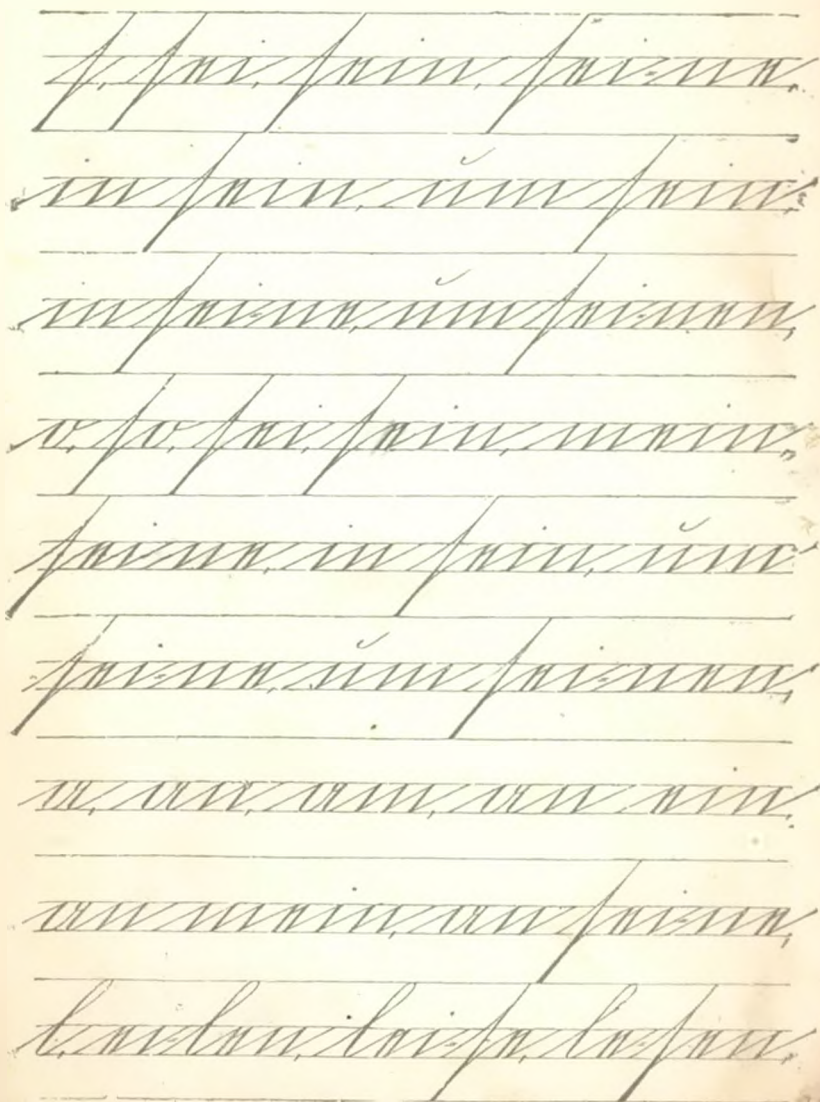 s, sei, sein, sei-ne,
in sein, um sein,
in sei-ne, um sei-nen,
o, so, sei, sein, mein,
sei-ne, in sein, um
sei-ne, um sei-nen,
a, an, am, an ein,
an mein, an sei-ne,
l, ei-len, lei-se, le-sen,